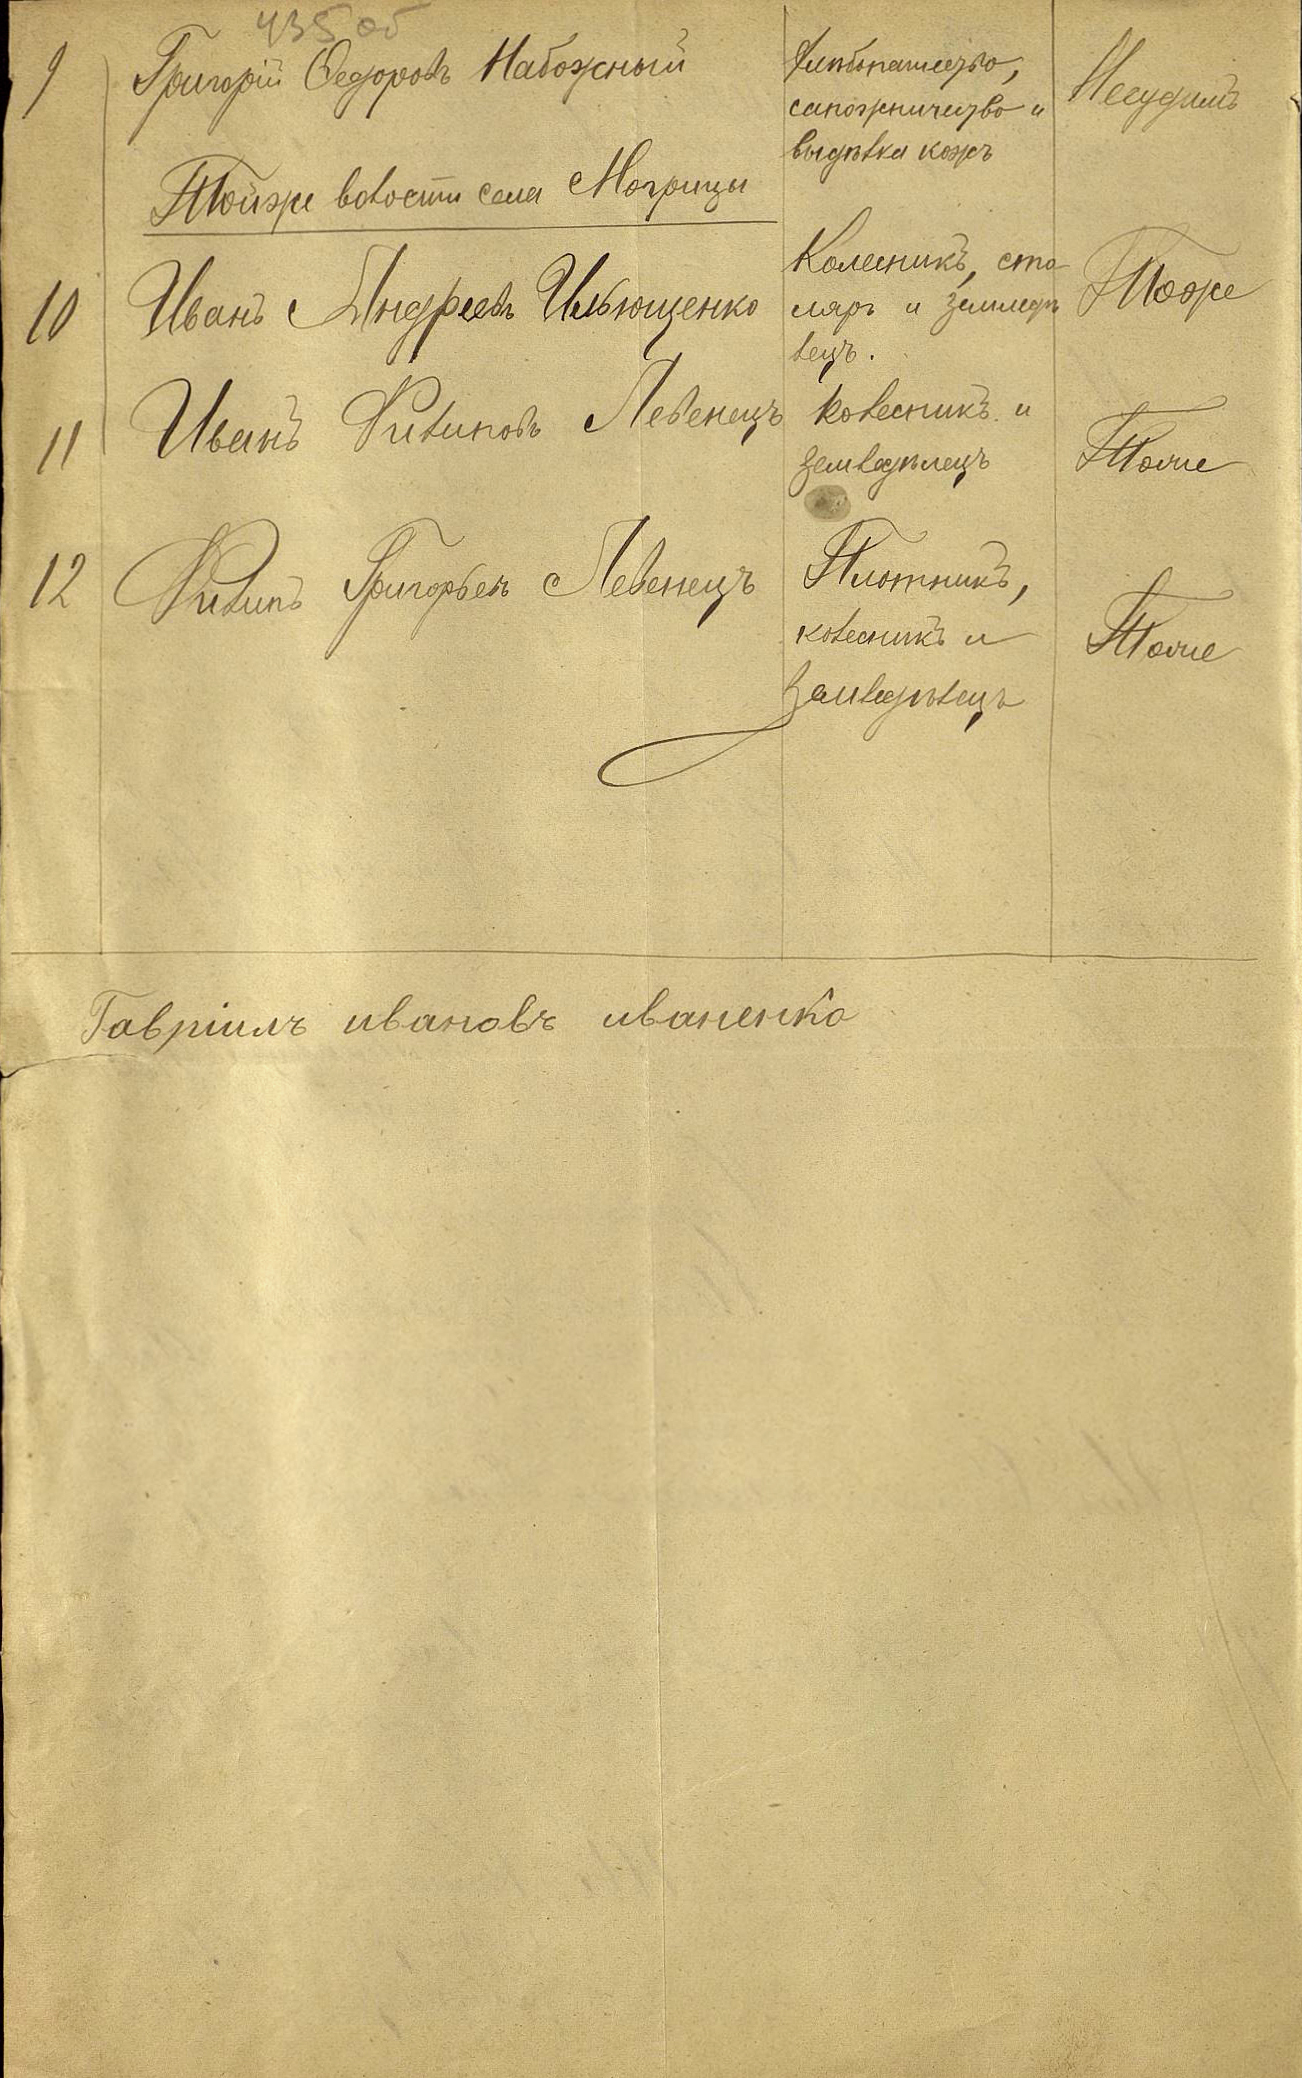 435 об
9 Григорій Ѳедоровъ Набожный Хлѣбопашество, Несудимъ
сапожничество и
выдѣлка кожъ
Тойже волости села Могрицы
10 Иванъ Андреевъ Ильющенко Колесникъ, сто- Тоже
ляръ и земледѣ
лецъ.
11 Иванъ Филиповъ Левенецъ Колесникъ и Тоже
земледѣлецъ
12 Филипъ Григорьевъ Левенецъ Плотникъ, Тоже
колесникъ и
земледѣлецъ
Гавріилъ ивановъ иваненко